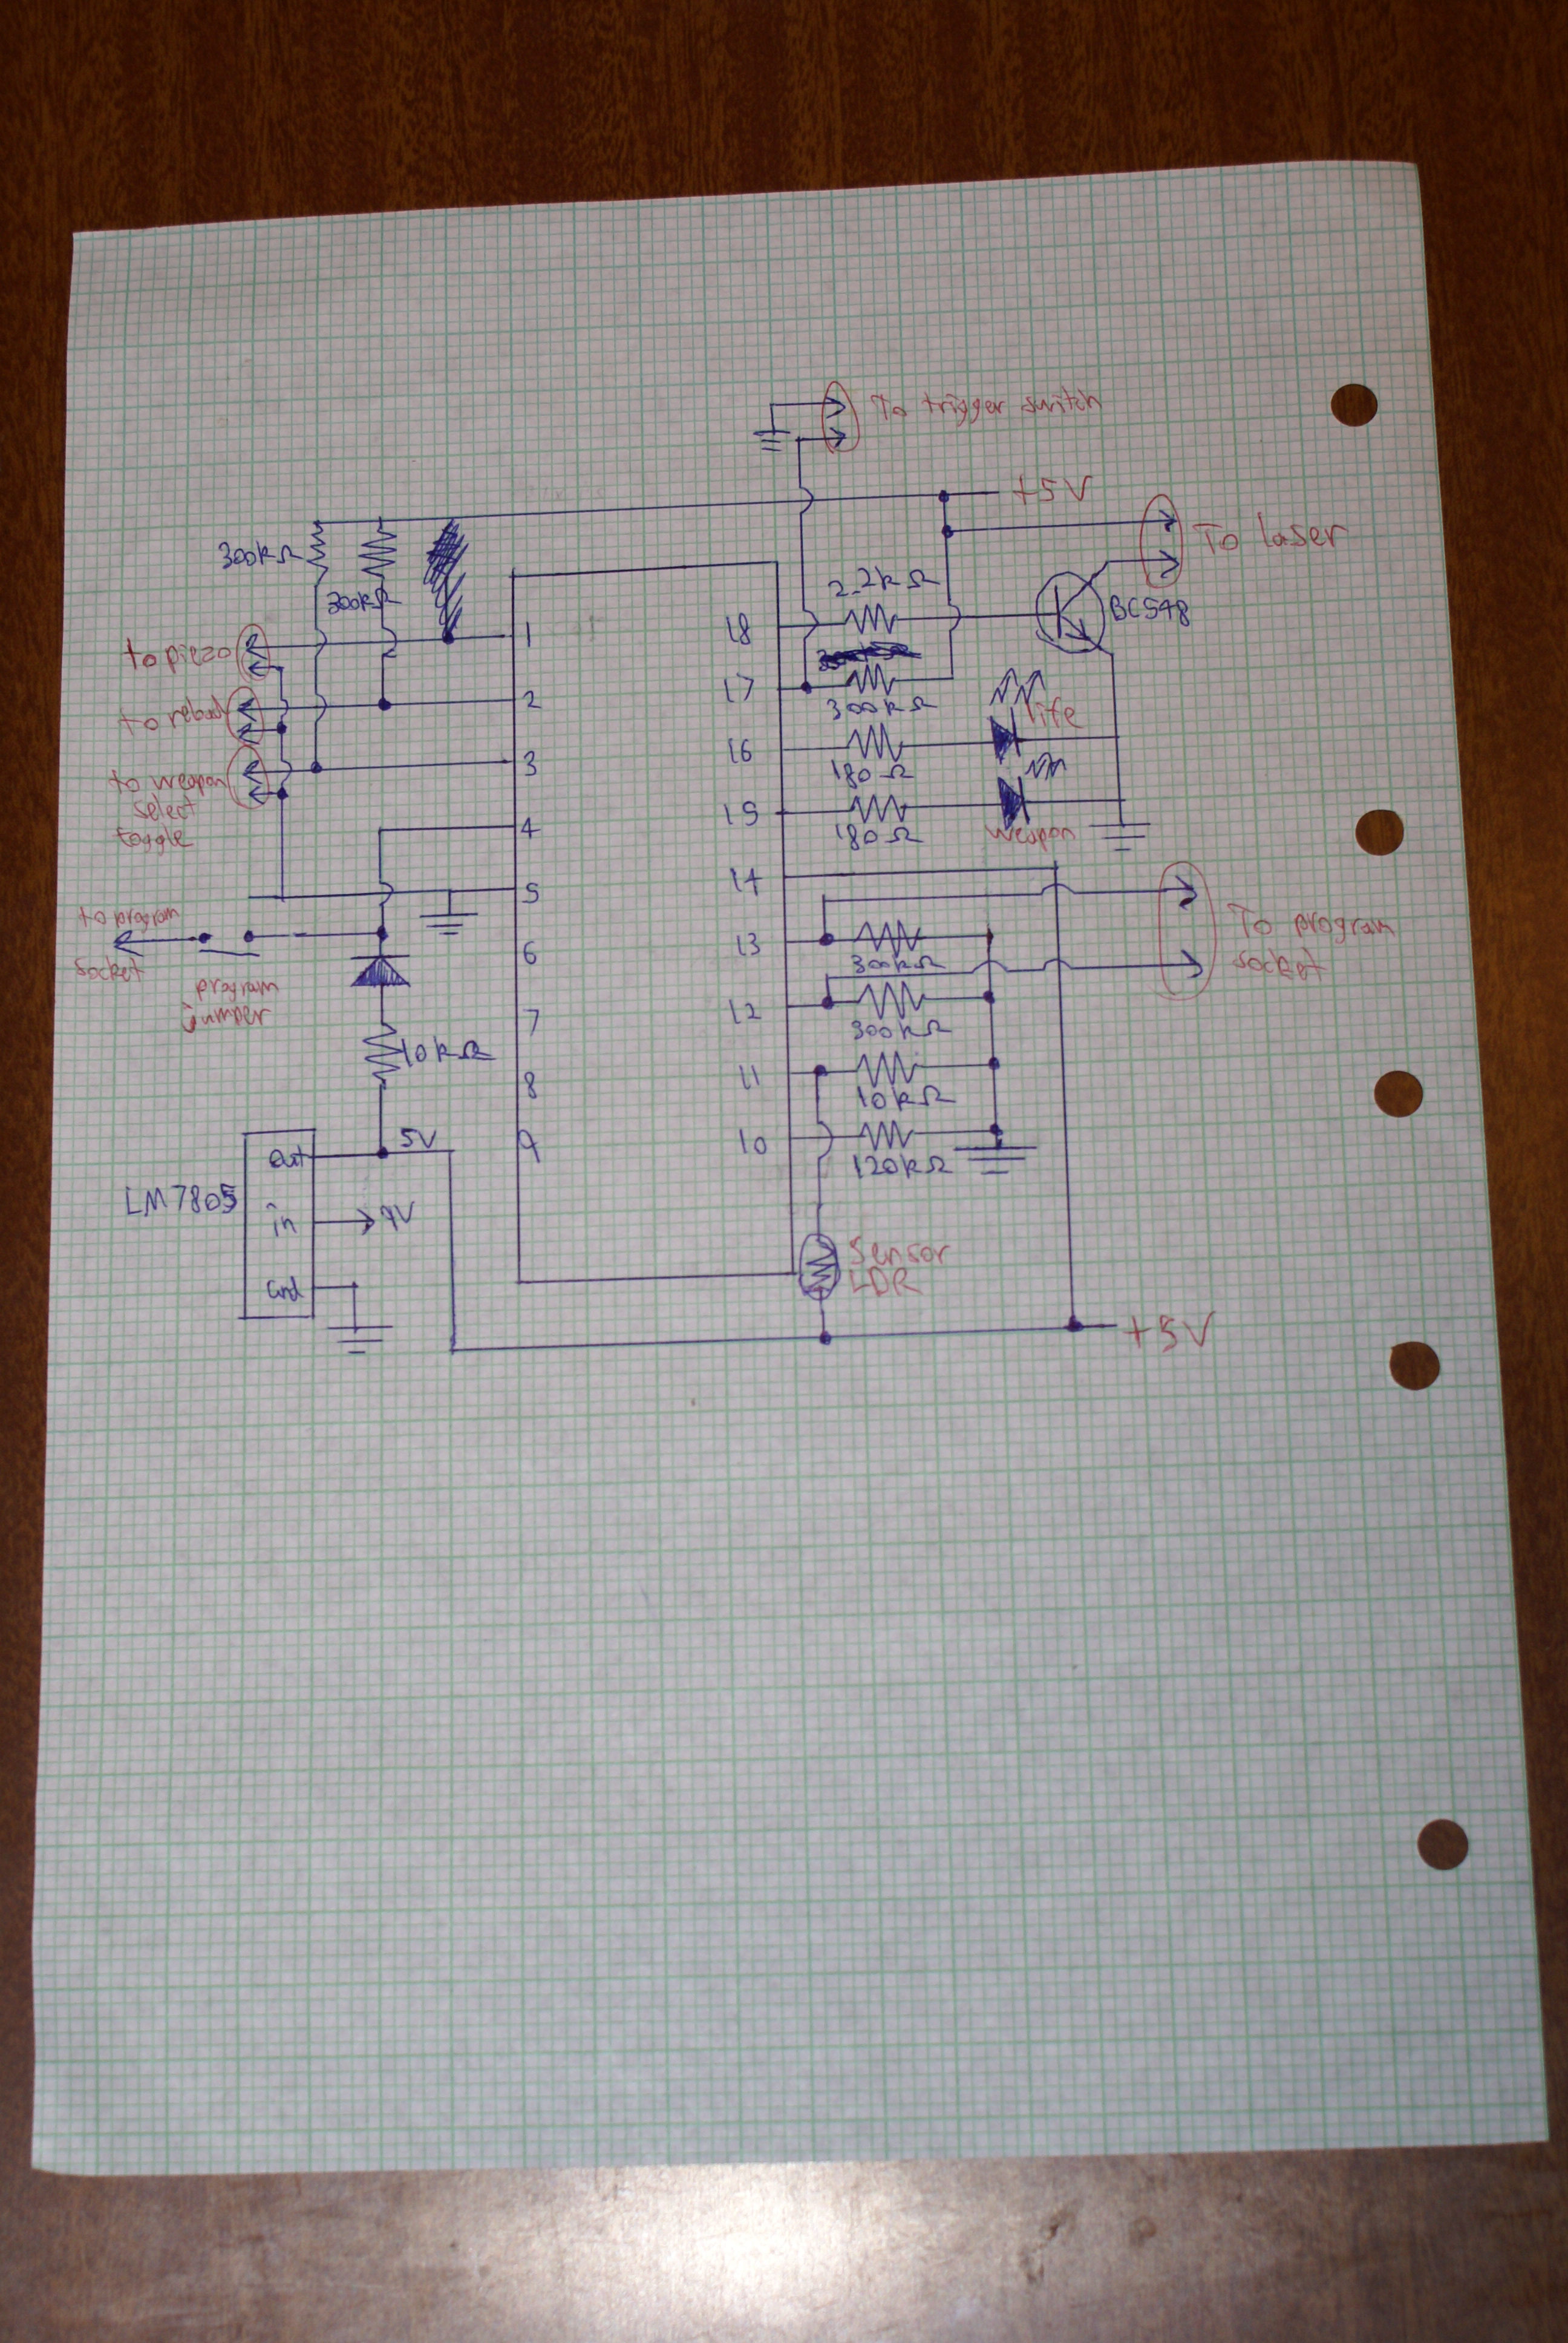 To trigger switch
+5V
To laser
300kΩ
300kΩ
2.2kΩ
BC548
to piezo
1
18
to reload
2
17
300kΩ
life
to weapon
select
toggle
3
16
180Ω
4
15
180Ω
weapon
5
14
to program
socket
program
jumper
6
13
300kΩ
To program
socket
7
12
300kΩ
10kΩ
8
11
10kΩ
9
10
120kΩ
5V
LM7805
out
in
9V
Gnd
Sensor
LDR
+5V